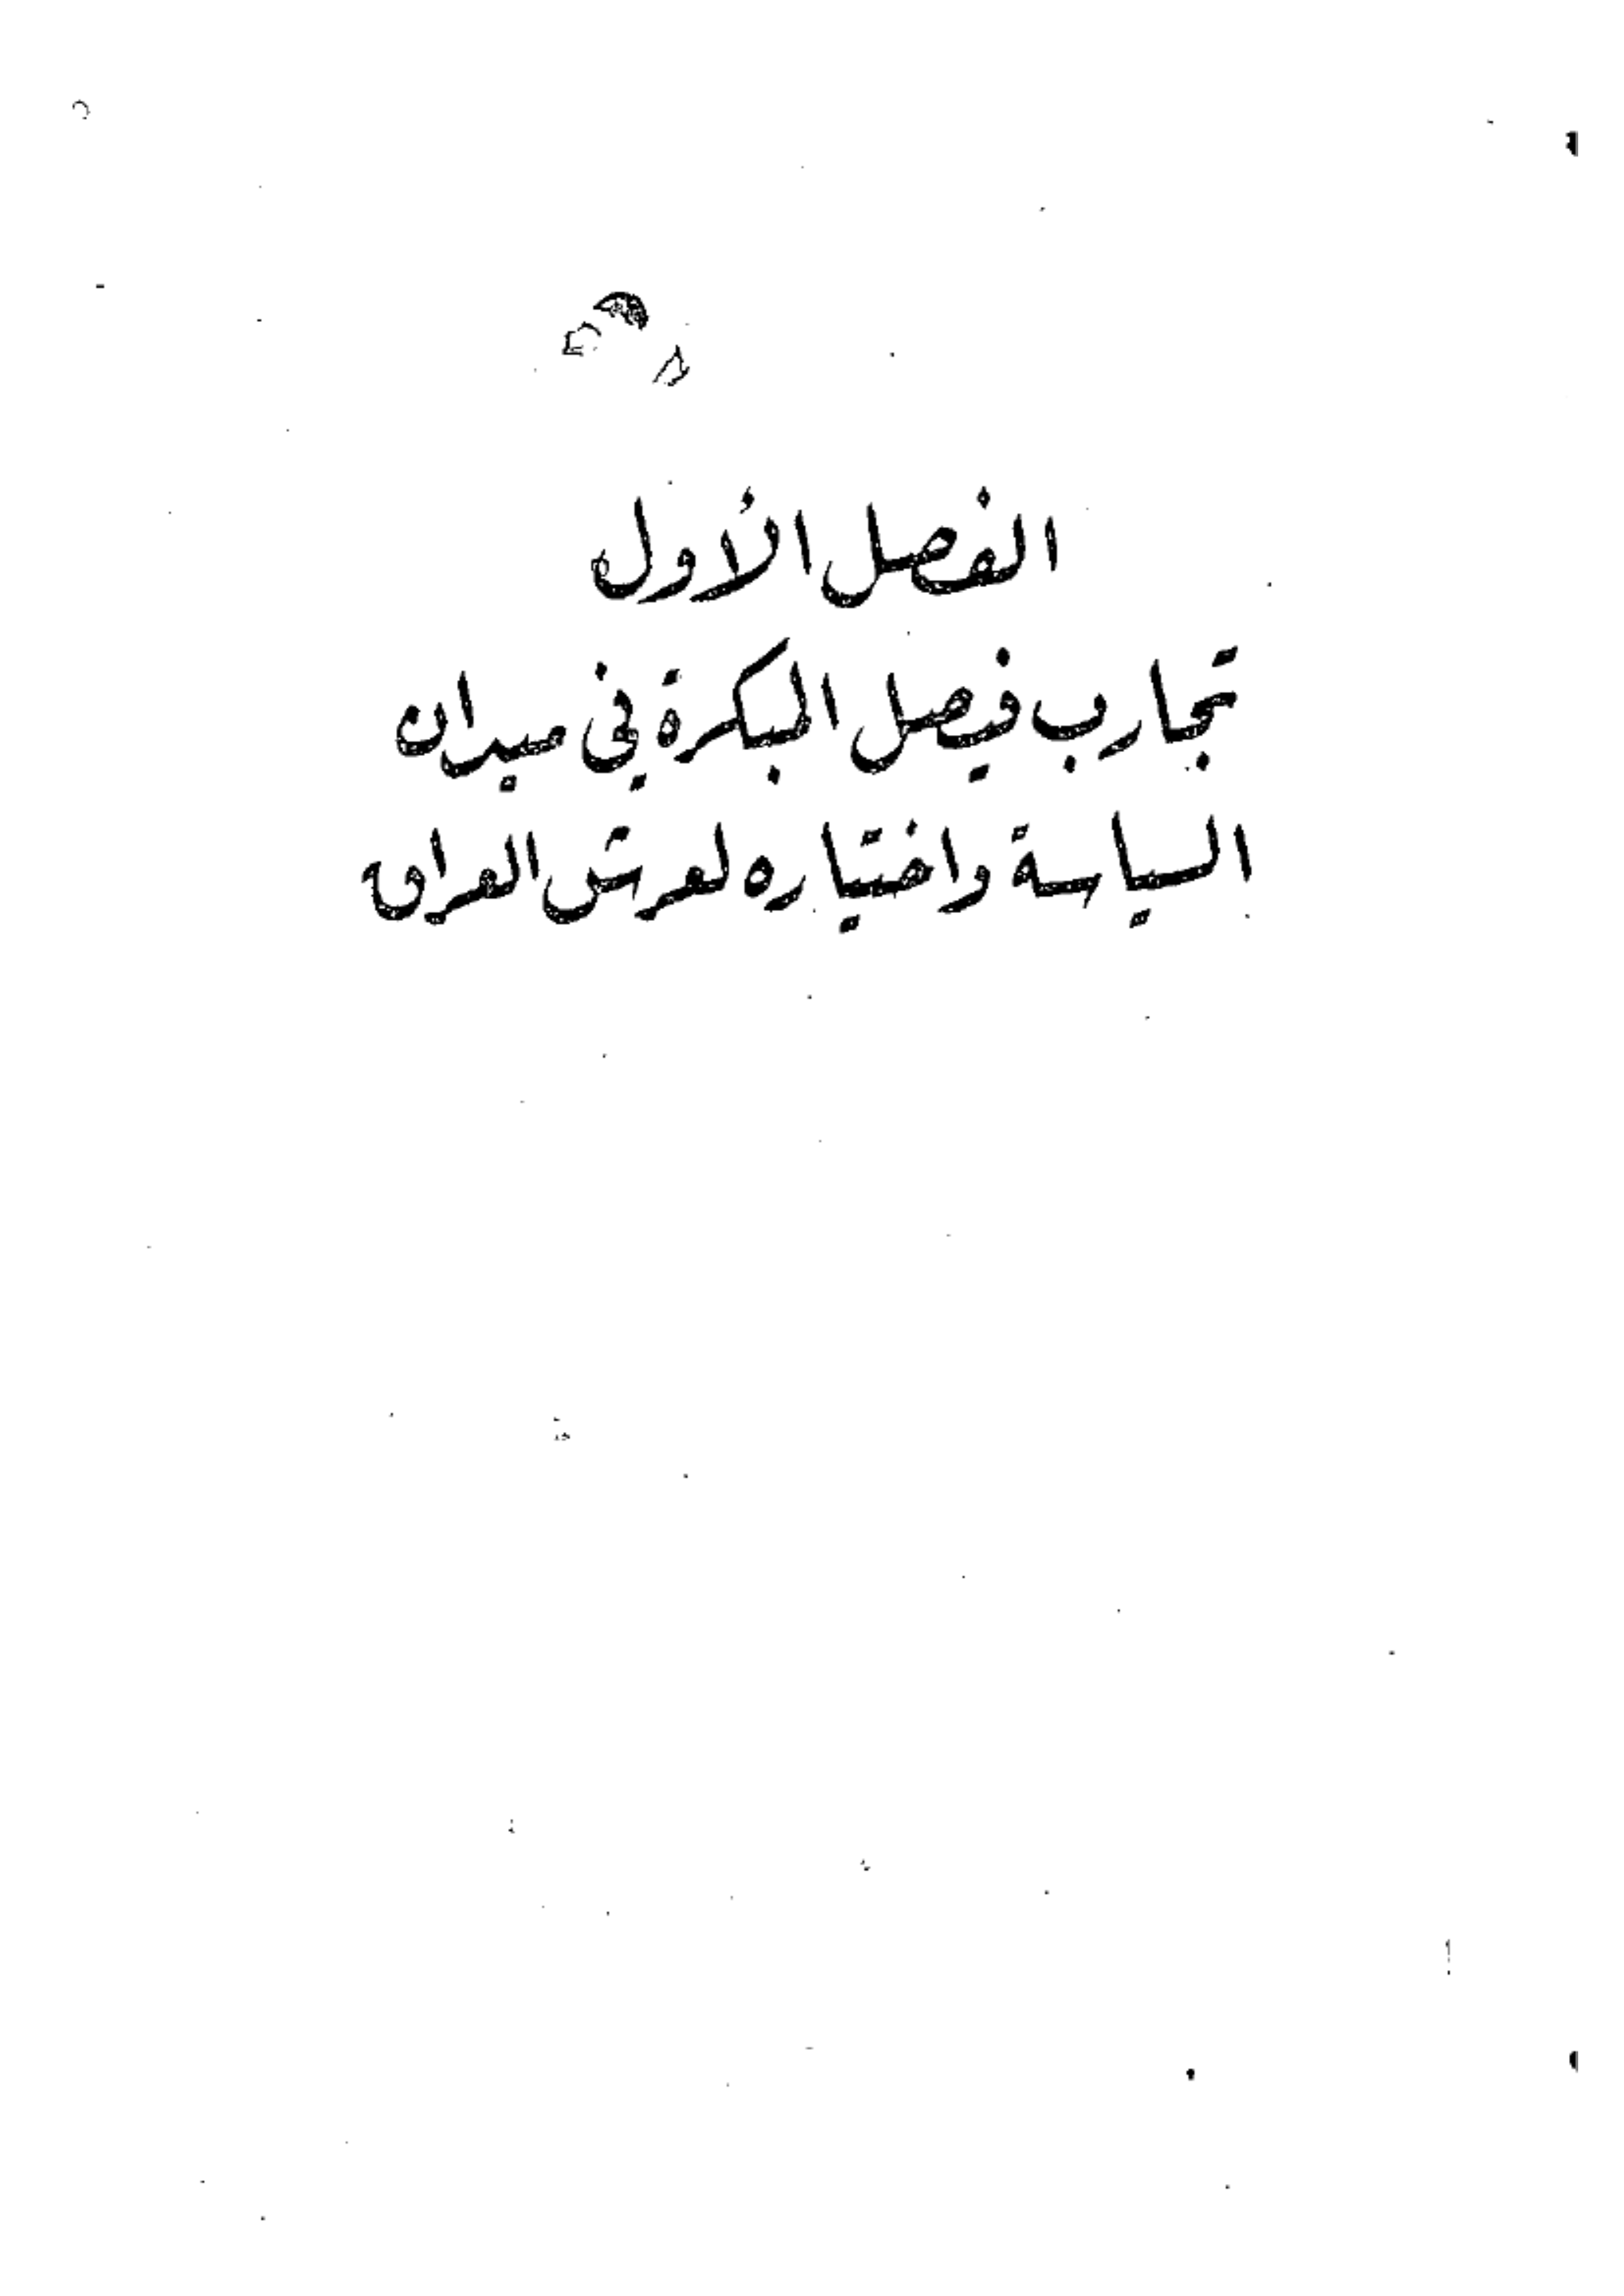 الفصل الأول
تجارب فيصل المبكرة في ميدان
السياسة واختياره لعرش العراق